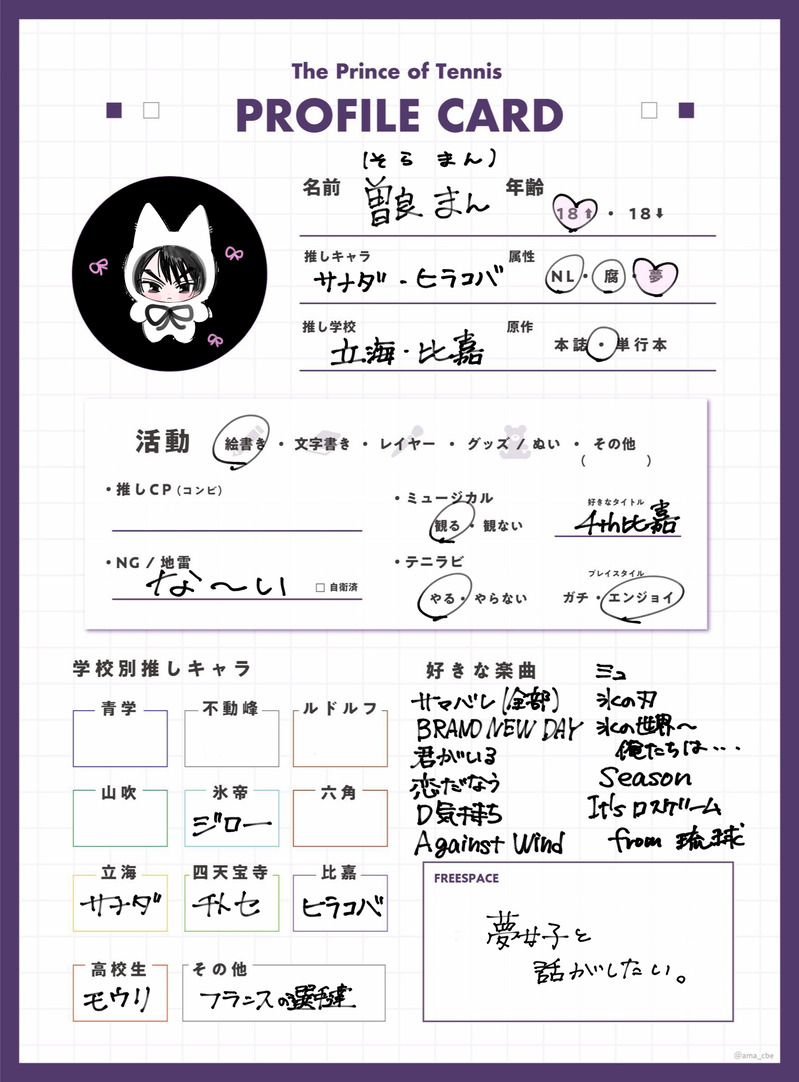 The Prince of Tennis
PROFILE CARD
(そらまん)
名前 曽良まん 年齢 18⬆・18⬇
推しキャラ サナダ・ヒラコバ 属性 NL・腐・夢
推し学校 立海・比嘉 原作 本誌・単行本
活動 絵書き・文字書き・レイヤー・グッズ/ぬい・その他
( )
・推しCP(コンビ)
・ミュージカル 好きなタイトル
観る・観ない 4th比嘉
・NG/地雷
な〜い □自衛済
・テニラビ プレイスタイル
やる・やらない ガチ・エンジョイ
学校別推しキャラ
青学 不動峰 ルドルフ
山吹 氷帝 六角
ジロー
立海 四天宝寺 比嘉
サナダ チトセ ヒラコバ
高校生 その他
モウリ フランスの選手達
好きな楽曲
サマバレ(全部)
BRAND NEW DAY
君がいる
恋だなう
D気持ち
Against Wind
ミュ
氷の刃
氷の世界〜
俺たちは…
Season
It's ロスタイム
from 琉球
FREESPACE
夢女子と
話がしたい。
@ama_cbe